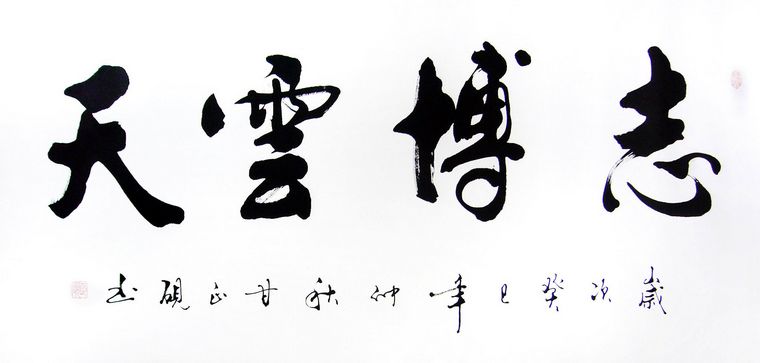 志博雲天
歲次癸巳年仲秋甘正硯书